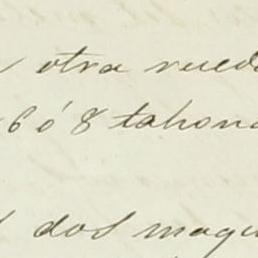 otra rueda
6 ó 8 tahona
dos maqu